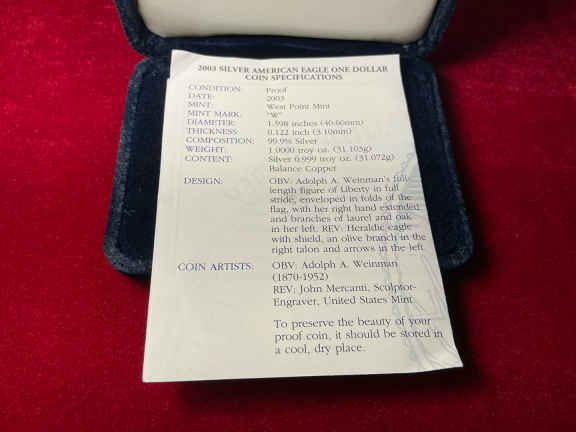 2003 SILVER AMERICAN EAGLE ONE DOLLAR
COIN SPECIFICATIONS
CONDITION: Proof
DATE: 2003
MINT: West Point Mint
MINT MARK: "W"
DIAMETER: 1.598 inches (40.60mm)
THICKNESS: 0.122 inch (3.10mm)
COMPOSITION: 99.9% Silver
WEIGHT: 1.0000 troy oz. (31.103g)
CONTENT: Silver 0.999 troy oz. (31.072g)
Balance Copper
DESIGN: OBV: Adolph A. Weinman's full-
length figure of Liberty in full
stride, enveloped in folds of the
flag, with her right hand extended
and branches of laurel and oak
in her left. REV: Heraldic eagle
with shield, an olive branch in the
right talon and arrows in the left.
COIN ARTISTS: OBV: Adolph A. Weinman
(1870-1952)
REV: John Mercanti, Sculptor-
Engraver, United States Mint
To preserve the beauty of your
proof coin, it should be stored in
a cool, dry place.